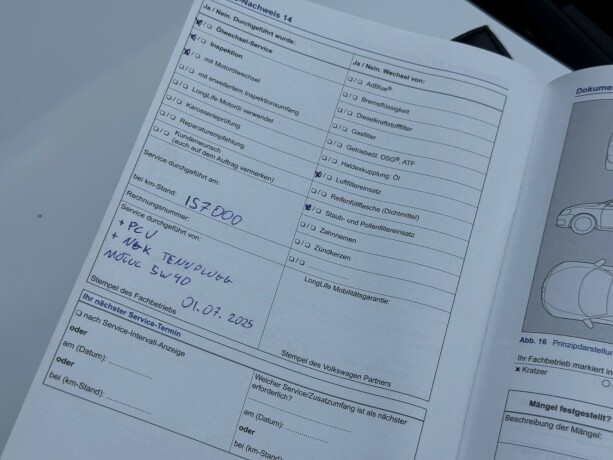 -Nachweis 14
Ja / Nein. Durchgeführt wurde:
Ölwechsel-Service
Inspektion
mit Motorölwechsel
mit erweitertem Inspektionsumfang
LongLife Motoröl verwendet
Karosserieprüfung
Reparaturempfehlung
Kundenwunsch
(auch auf dem Auftrag vermerken)
Service durchgeführt am:
bei km-Stand: 157000
Rechnungsnummer:
Service durchgeführt von:
+ PCV
MOTUL 5W40
01.07.2025
Stempel des Fachbetriebs
Ja / Nein. Wechsel von:
AdBlue®
Bremsflüssigkeit
Dieselkraftstofffilter
Gasfilter
Getriebeöl: DSG®, ATF
Haldexkupplung: Öl
Luftfiltereinsatz
Reifenfüllflasche (Dichtmittel)
Staub- und Pollenfiltereinsatz
Zahnriemen
Zündkerzen
LongLife Mobilitätsgarantie:
Stempel des Volkswagen Partners
Ihr nächster Service-Termin
nach Service-Intervall-Anzeige
oder
am (Datum): ...............
oder
bei (km-Stand): ...............
Welcher Service/Zusatzumfang ist als nächster
erforderlich? ...............
am (Datum): ...............
oder
bei (km-Stand): 
Dokume
Abb. 16 Prinzipdarstellu
Ihr Fachbetrieb markiert in
× Kratzer
Mängel festgestellt?
Beschreibung der Mängel: